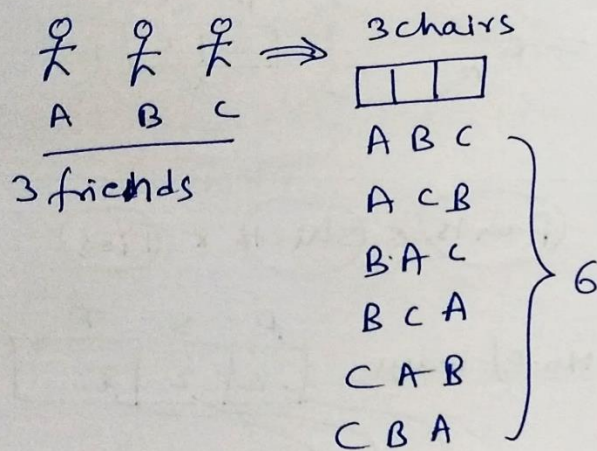 3 chairs
A B C
3 friends
A B C
A C B
B A C
B C A
C A B
C B A
6